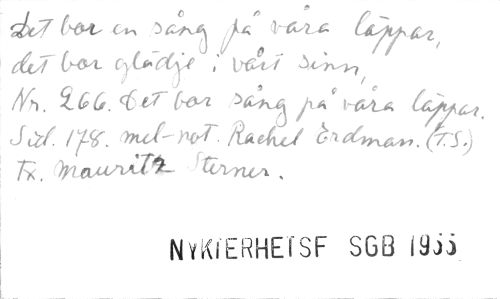 Det bor en sång på våra läppar,
det bor glädje i vårt sinn,
Nr. 266. Det bor sång på våra läppar.
Sid. 178. mel-not. Rachel Erdman. (T.S.)
Tx. Mauritz Sterner.
NYKTERHETSF SGB 1955